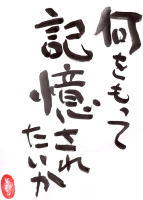 何をもって
記憶され
たいか